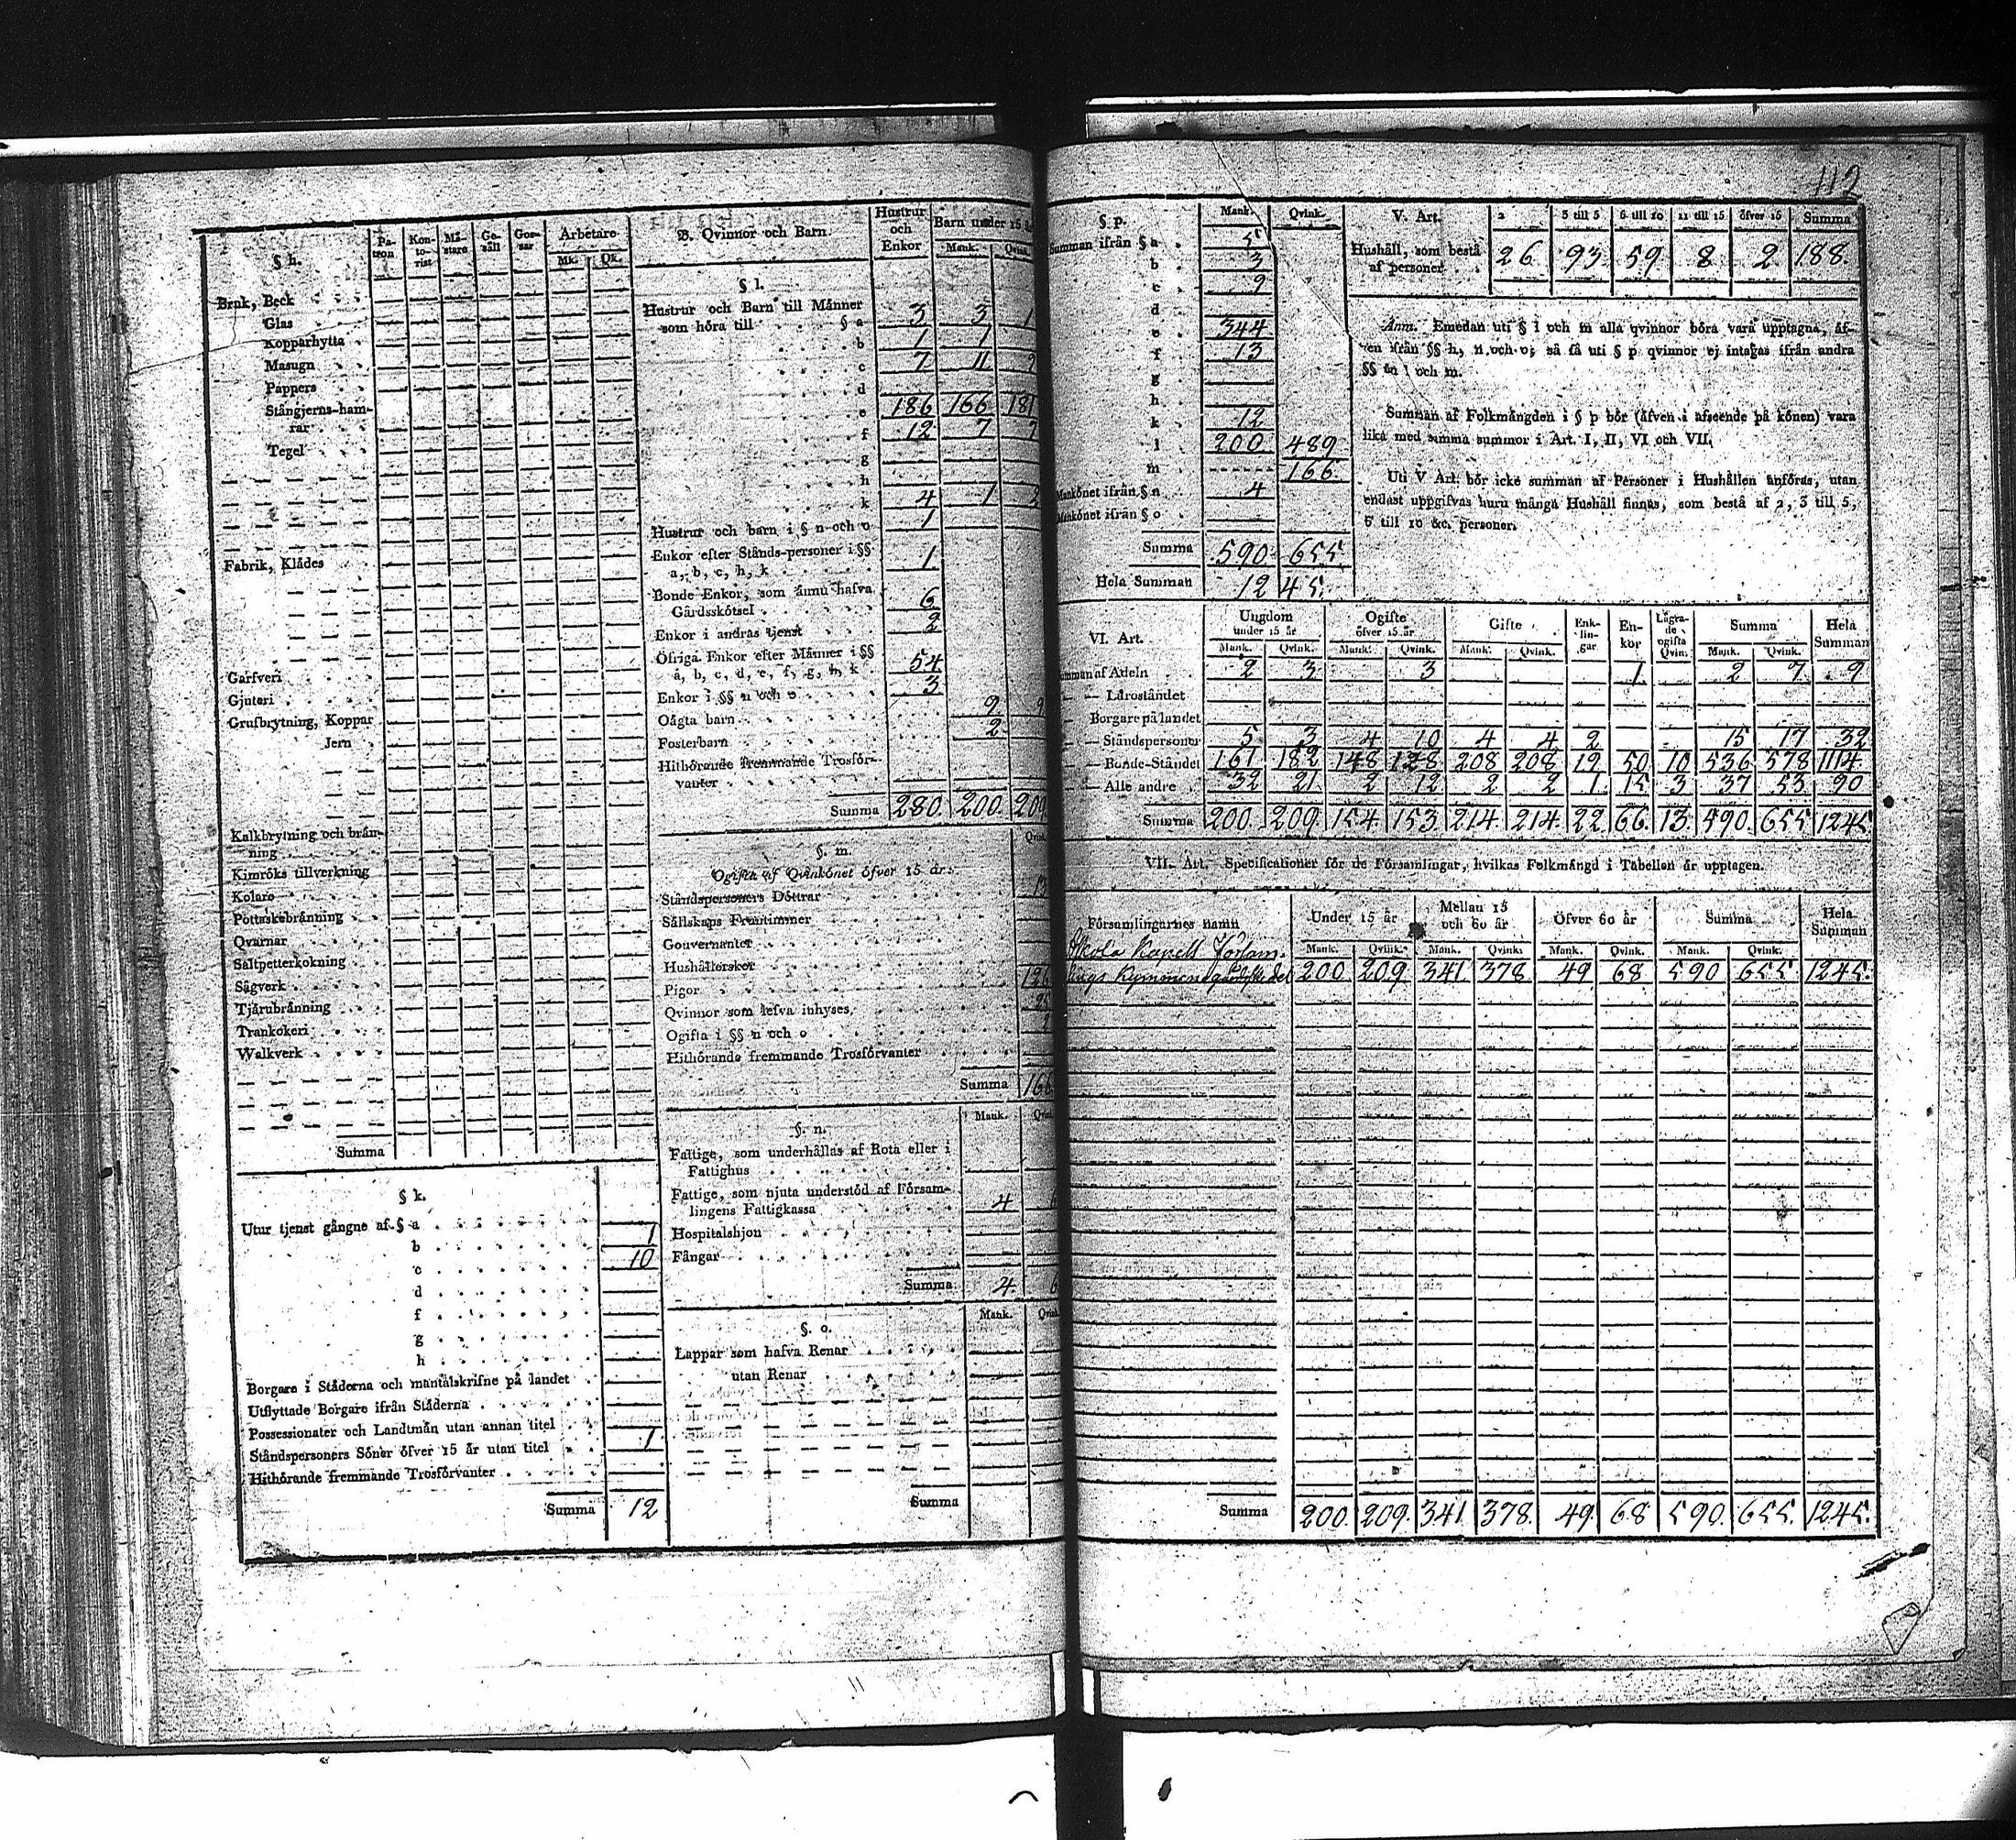 § h.
Pa-
tron
Kon-
to-
rist
Mä-
stare
Ge-
säll
Gos-
sar
Arbetare
Mk. Qk.
Bruk, Beck
Glas
Kopparhytta
Masugn
Pappers
Stångjerns-ham-
rar
Tegel
Fabrik, Klädes
Garfveri
Gjuteri
Grufbrytning, Koppar
Jern
Kalkbrytning och brän-
ning
Kimröks tillverkning
Kolare
Pottaskebränning
Qvarnar
Saltpetterkokning
Sågverk
Tjärubränning
Trankokeri
Walkverk
Summa
§ k.
Utur tjenst gångne af § a 1
b 10
c
d
f
g
h
Borgare i Städerna och mantalskrifne på landet
Utflyttade Borgare ifrån Städerna
Possessionater och Landtmän utan annan titel
Ståndspersoners Söner öfver 15 år utan titel 1
Hithörande fremmande Trosförvanter
Summa 12
B. Qvinnor och Barn.
Hustrur
och
Enkor
Barn under 15 år
Mank. Qvink.
§ l.
Hustrur och Barn till Männer
som höra till § a 3 3 1
b 1 1
c 7 11
d
e 186 166 181
f 12 7 7
g
h
k 4 1 2
Hustrur och barn i § n och o 1
Enkor efter Stånds-personer i §§
a, b, c, h, k 1
Bonde Enkor, som ännu hafva
Gårdsskötsel 6
Enkor i andras tjenst 2
Öfriga Enkor efter Männer i §§
a, b, c, d, e, f, g, h, k 54
Enkor i §§ n och o 3
Oägta barn 9 9
Fosterbarn 2
Hithörande fremmande Trosför-
vanter
Summa 280. 200. 209
§. m.
Qvink.
Ogifta af Qvinkönet öfver 15 år:
Ståndspersoners Döttrar 13
Sällskaps Fruntimmer
Gouvernanter
Hushållerskor
Pigor 126
Qvinnor som lefva inhyses
Ogifta i §§ n och o
Hithörande fremmande Trosförvanter
Summa 166
§. n.
Mank. Qvink.
Fattige, som underhållas af Rota eller i
Fattighus
Fattige, som njuta understöd af Försam-
lingens Fattigkassa 4 6
Hospitalshjon
Fångar
Summa 4. 6
§. o.
Mank. Qvink.
Lappar som hafva Renar
utan Renar
Summa
112
§ p. Mank. Qvink.
Summan ifrån § a 5
b 3
c 9
d
e 344
f 13
g
h
k 12
l 200 489
m 166.
Mankönet ifrån § n 4
Mankönet ifrån § o
Summa 590. 655.
Hela Summan 1245.
V. Art. 2 3 till 5 6 till 10 11 till 15 öfver 15 Summa
Hushåll, som bestå
af personer 26 93. 59 8 2 188.
Anm. Emedan uti § l och m alla qvinnor böra vara upptagna, äf-
ven ifrån §§ h, n och o; så få uti § p qvinnor ej intagas ifrån andra
§§ än l och m.
Summan af Folkmängden i § p bör (äfven i afseende på könen) vara
lika med summa summor i Art. I, II, VI och VII.
Uti V Art. bör icke summan af Personer i Hushållen anföras, utan
endast uppgifvas huru många Hushåll finnas, som bestå af 2, 3 till 5,
6 till 10 &c. personer.
VI. Art.
Ungdom
under 15 år
Ogifte
öfver 15 år
Gifte
Enk-
lin-
gar
En-
kor
Lägra-
de
ogifta
Qvin.
Summa
Hela
Summan
Mank. Qvink. Mank. Qvink. Mank. Qvink. Mank. Qvink.
Summan af Adeln 2 3 3 1 2 7 9
— — Läroståndet
— Borgare på landet
— — Ståndspersoner 5 3 4 10 4 4 2 15 17 32
— — Bonde-Ståndet 161 182 148 128 208 208 19 50 10 536 578 1114
— — Alle andre 32 21 2 12 2 2 1 15 3 37 53 90
Summa 200. 209. 154. 153. 214. 214. 22. 66. 13. 590. 655. 1245.
VII. Art. Specificationer för de Församlingar, hvilkas Folkmängd i Tabellen är upptagen.
Församlingarnes namn
Under 15 år
Mellan 15
och 60 år
Öfver 60 år
Summa
Hela
Summan
Mank. Qvink. Mank. Qvink. Mank. Qvink. Mank. Qvink.
Kapells Församl.
Kymmene 200 209 341 378 49 68 590 655 1245.
Summa 200. 209. 341. 378. 49. 68 590. 655. 1245.